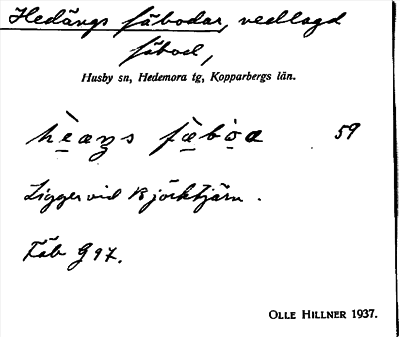 Hedängs fäbodar, nedlagd
fäbod,
Husby sn, Hedemora tg, Kopparbergs län.
59
Ligger vid Björktjärn.
Fäb G 97.
OLLE HILLNER 1937.